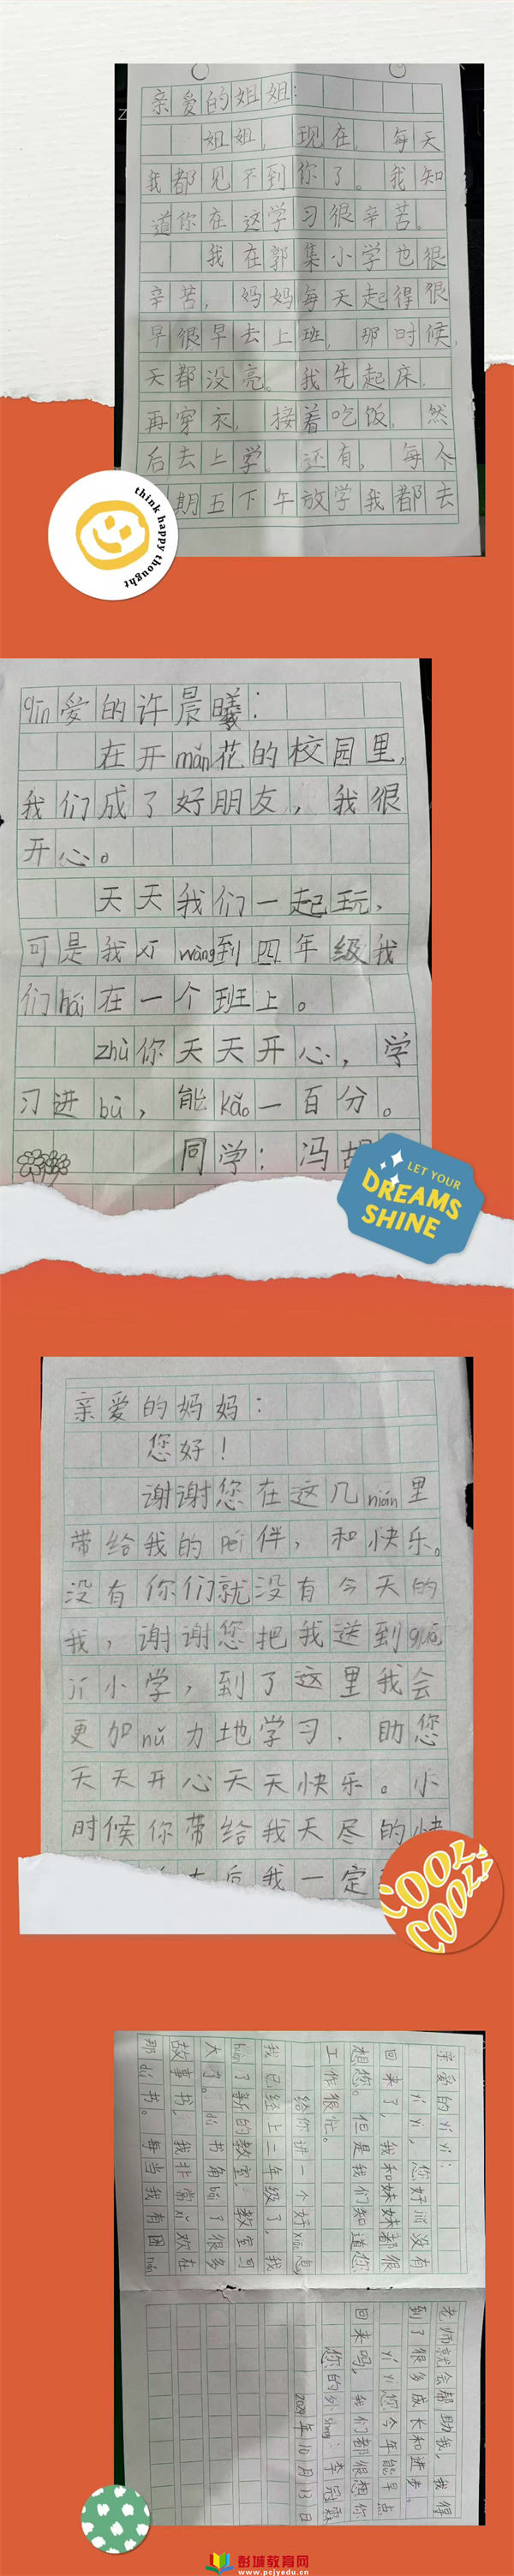 亲爱的姐姐：
姐姐，现在，每天
我都见不到你了。我知
道你在这学习很辛苦。
我在郭集小学也很
辛苦，妈妈每天起得很
早很早去上班，那时候，
天都没亮。我先起床，
再穿衣，接着吃饭，然
后去上学。还有，每个
期五下午放学我都去
think happy thought
qīn爱的许晨曦：
在开mǎn花的校园里，
我们成了好朋友，我很
开心。
天天我们一起玩，
可是我xī wàng到四年级我
们hái在一个班上。
zhù你天天开心，学
习进bù，能kǎo一百分。
同学：冯胡
LET YOUR
DREAMS
SHINE
亲爱的妈妈：
您好！
谢谢您在这几nián里
带给我的péi伴，和快乐。
没有你们就没有今天的
我，谢谢您把我送到guō
jí小学，到了这里我会
更加nǔ力地学习，助您
天天开心天天快乐。小
时候你带给我天尽的快
后我一定
COOL
COOL
亲爱的yí yí：
yí yí，您好jiǔ没有
回来了，我和妹妹都很
想您。但是我们知道您
工作很忙。
给你讲一个好xiāo息，
我已经上二年级了，我
bān了新的教室，教室可
大了。dú书角bǎi了很多
故事书，我非常xǐ欢在
那dú书。每当我有困nán
老师就会帮助我，我得
到了很多成长和进步。
yí yí您今年能早点
回来吗，我们都很想你
您的外shēng：李冠霖
2024年10月13日
彭城教育网
www.pcjyedu.cn